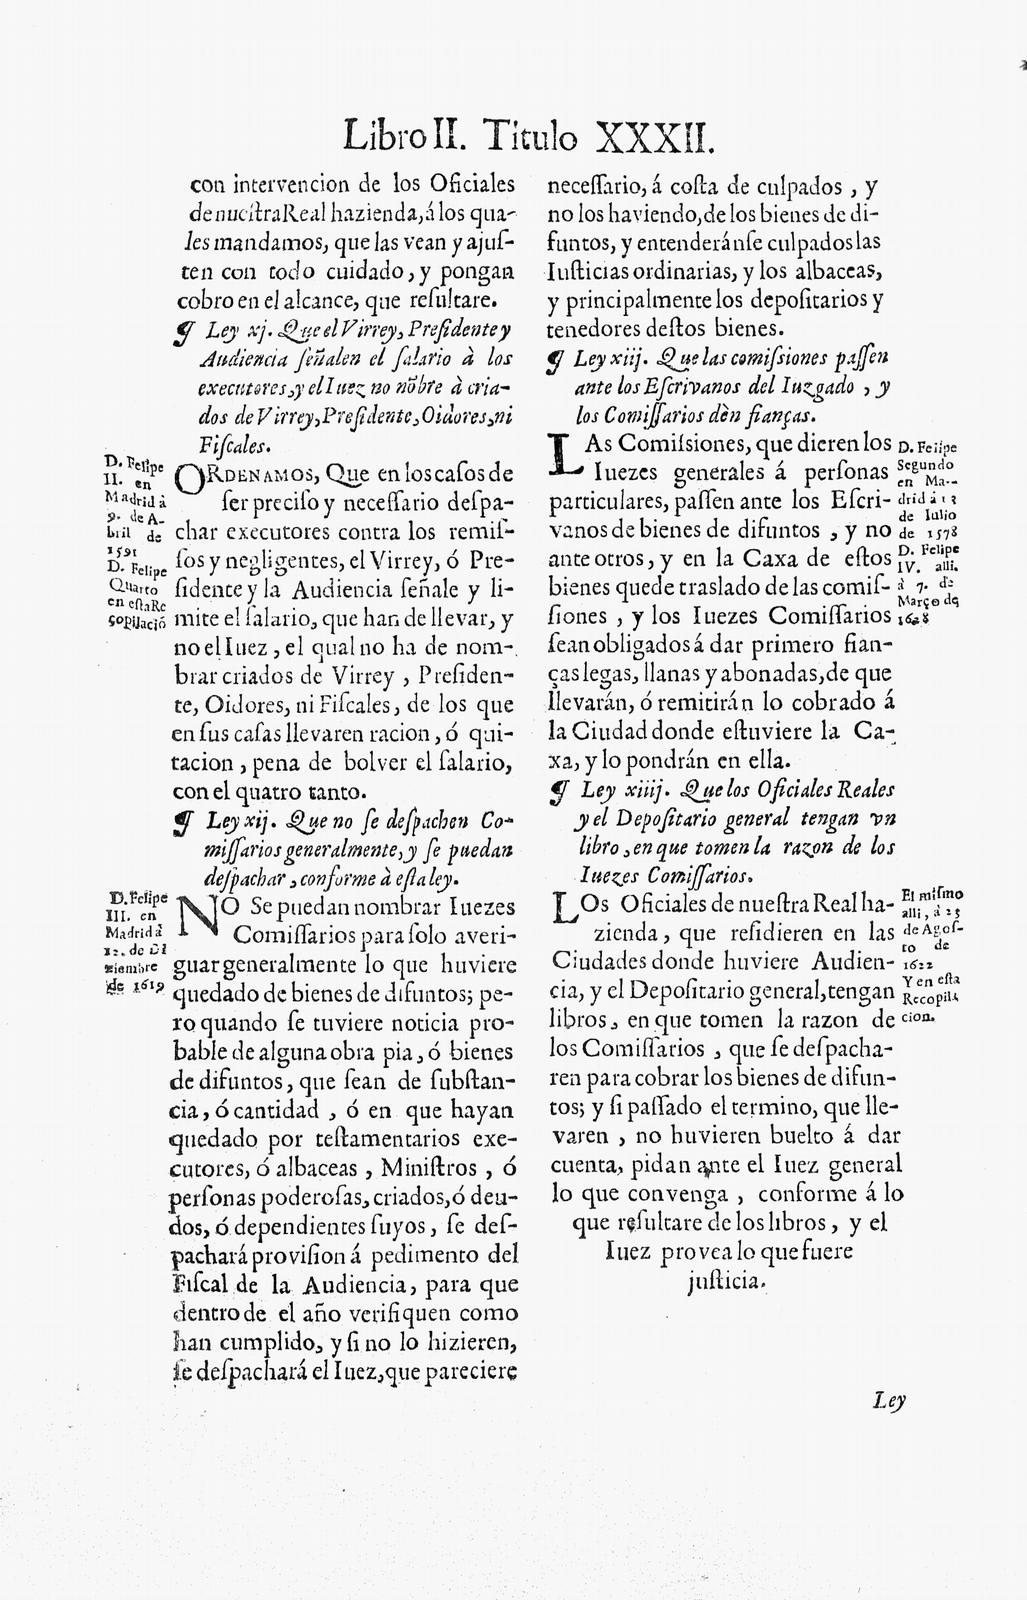 Libro II. Titulo XXXII.
con intervencion de los Oficiales
de nueſtra Real hazienda, á los qua-
les mandamos, que las vean y ajuſ-
ten con todo cuidado, y pongan
cobro en el alcance, que reſultare.
¶ Ley xj. Que el Virrey, Preſidente y
Audiencia ſeñalen el ſalario à los
executores, y el Iuez no nõbre à cria-
dos de Virrey, Preſidente, Oidores, ni
Fiſcales.
D. Felipe
II. en
Madrid à
9. de A-
bril de
1591
D. Felipe
Quarto
en eſta Re
copilació
ORDENAMOS, Que en los caſos de
ſer preciſo y neceſſario deſpa-
char executores contra los remiſ-
ſos y negligentes, el Virrey, ó Pre-
ſidente y la Audiencia ſeñale y li-
mite el ſalario, que han de llevar, y
no el Iuez, el qual no ha de nom-
brar criados de Virrey, Preſiden-
te, Oidores, ni Fiſcales, de los que
en ſus caſas llevaren racion, ó qui-
tacion, pena de bolver el ſalario,
con el quatro tanto.
¶ Ley xij. Que no ſe deſpachen Co-
miſſarios generalmente, y ſe puedan
deſpachar, conforme à eſta ley.
D. Felipe
III. en
Madrid à
12. de Di
ziembre
de 1619
NO Se puedan nombrar Iuezes
Comiſſarios para ſolo averi-
guar generalmente lo que huviere
quedado de bienes de difuntos; pe-
ro quando ſe tuviere noticia pro-
bable de alguna obra pia, ó bienes
de difuntos, que ſean de ſubſtan-
cia, ó cantidad, ó en que hayan
quedado por teſtamentarios exe-
cutores, ó albaceas, Miniſtros, ó
perſonas poderoſas, criados, ó deu-
dos, ó dependientes ſuyos, ſe deſ-
pachará proviſion á pedimento del
Fiſcal de la Audiencia, para que
dentro de el año verifiquen como
han cumplido, y ſi no lo hizieren,
ſe deſpachará el Iuez, que pareciere
neceſſario, á coſta de culpados, y
no los haviendo, de los bienes de di-
funtos, y entenderánſe culpados las
Iuſticias ordinarias, y los albaceas,
y principalmente los depoſitarios y
tenedores deſtos bienes.
¶ Ley xiij. Que las comiſsiones paſſen
ante los Eſcrivanos del Iuzgado, y
los Comiſſarios dèn fianças.
LAs Comiſsiones, que dieren los
Iuezes generales á perſonas
particulares, paſſen ante los Eſcri-
vanos de bienes de difuntos, y no
ante otros, y en la Caxa de eſtos
bienes quede traslado de las comiſ-
ſiones, y los Iuezes Comiſſarios
ſean obligados á dar primero fian-
ças legas, llanas y abonadas, de que
llevarán, ó remitirán lo cobrado á
la Ciudad donde eſtuviere la Ca-
xa, y lo pondrán en ella.
D. Felipe
Segundo
en Ma-
drid á 13
de Iulio
de 1578
D. Felipe
IV. alli.
à 7. de
Março de
1628
¶ Ley xiiij. Que los Oficiales Reales
y el Depoſitario general tengan vn
libro, en que tomen la razon de los
Iuezes Comiſſarios.
LOs Oficiales de nueſtra Real ha-
zienda, que reſidieren en las
Ciudades donde huviere Audien-
cia, y el Depoſitario general, tengan
libros, en que tomen la razon de
los Comiſſarios, que ſe deſpacha-
ren para cobrar los bienes de difun-
tos; y ſi paſſado el termino, que lle-
varen, no huvieren buelto á dar
cuenta, pidan ante el Iuez general
lo que convenga, conforme á lo
que reſultare de los libros, y el
Iuez provea lo que fuere
juſticia.
El miſmo
alli, à 25
de Agoſ-
to de
1622
Y en eſta
Recopila
cion.
Ley